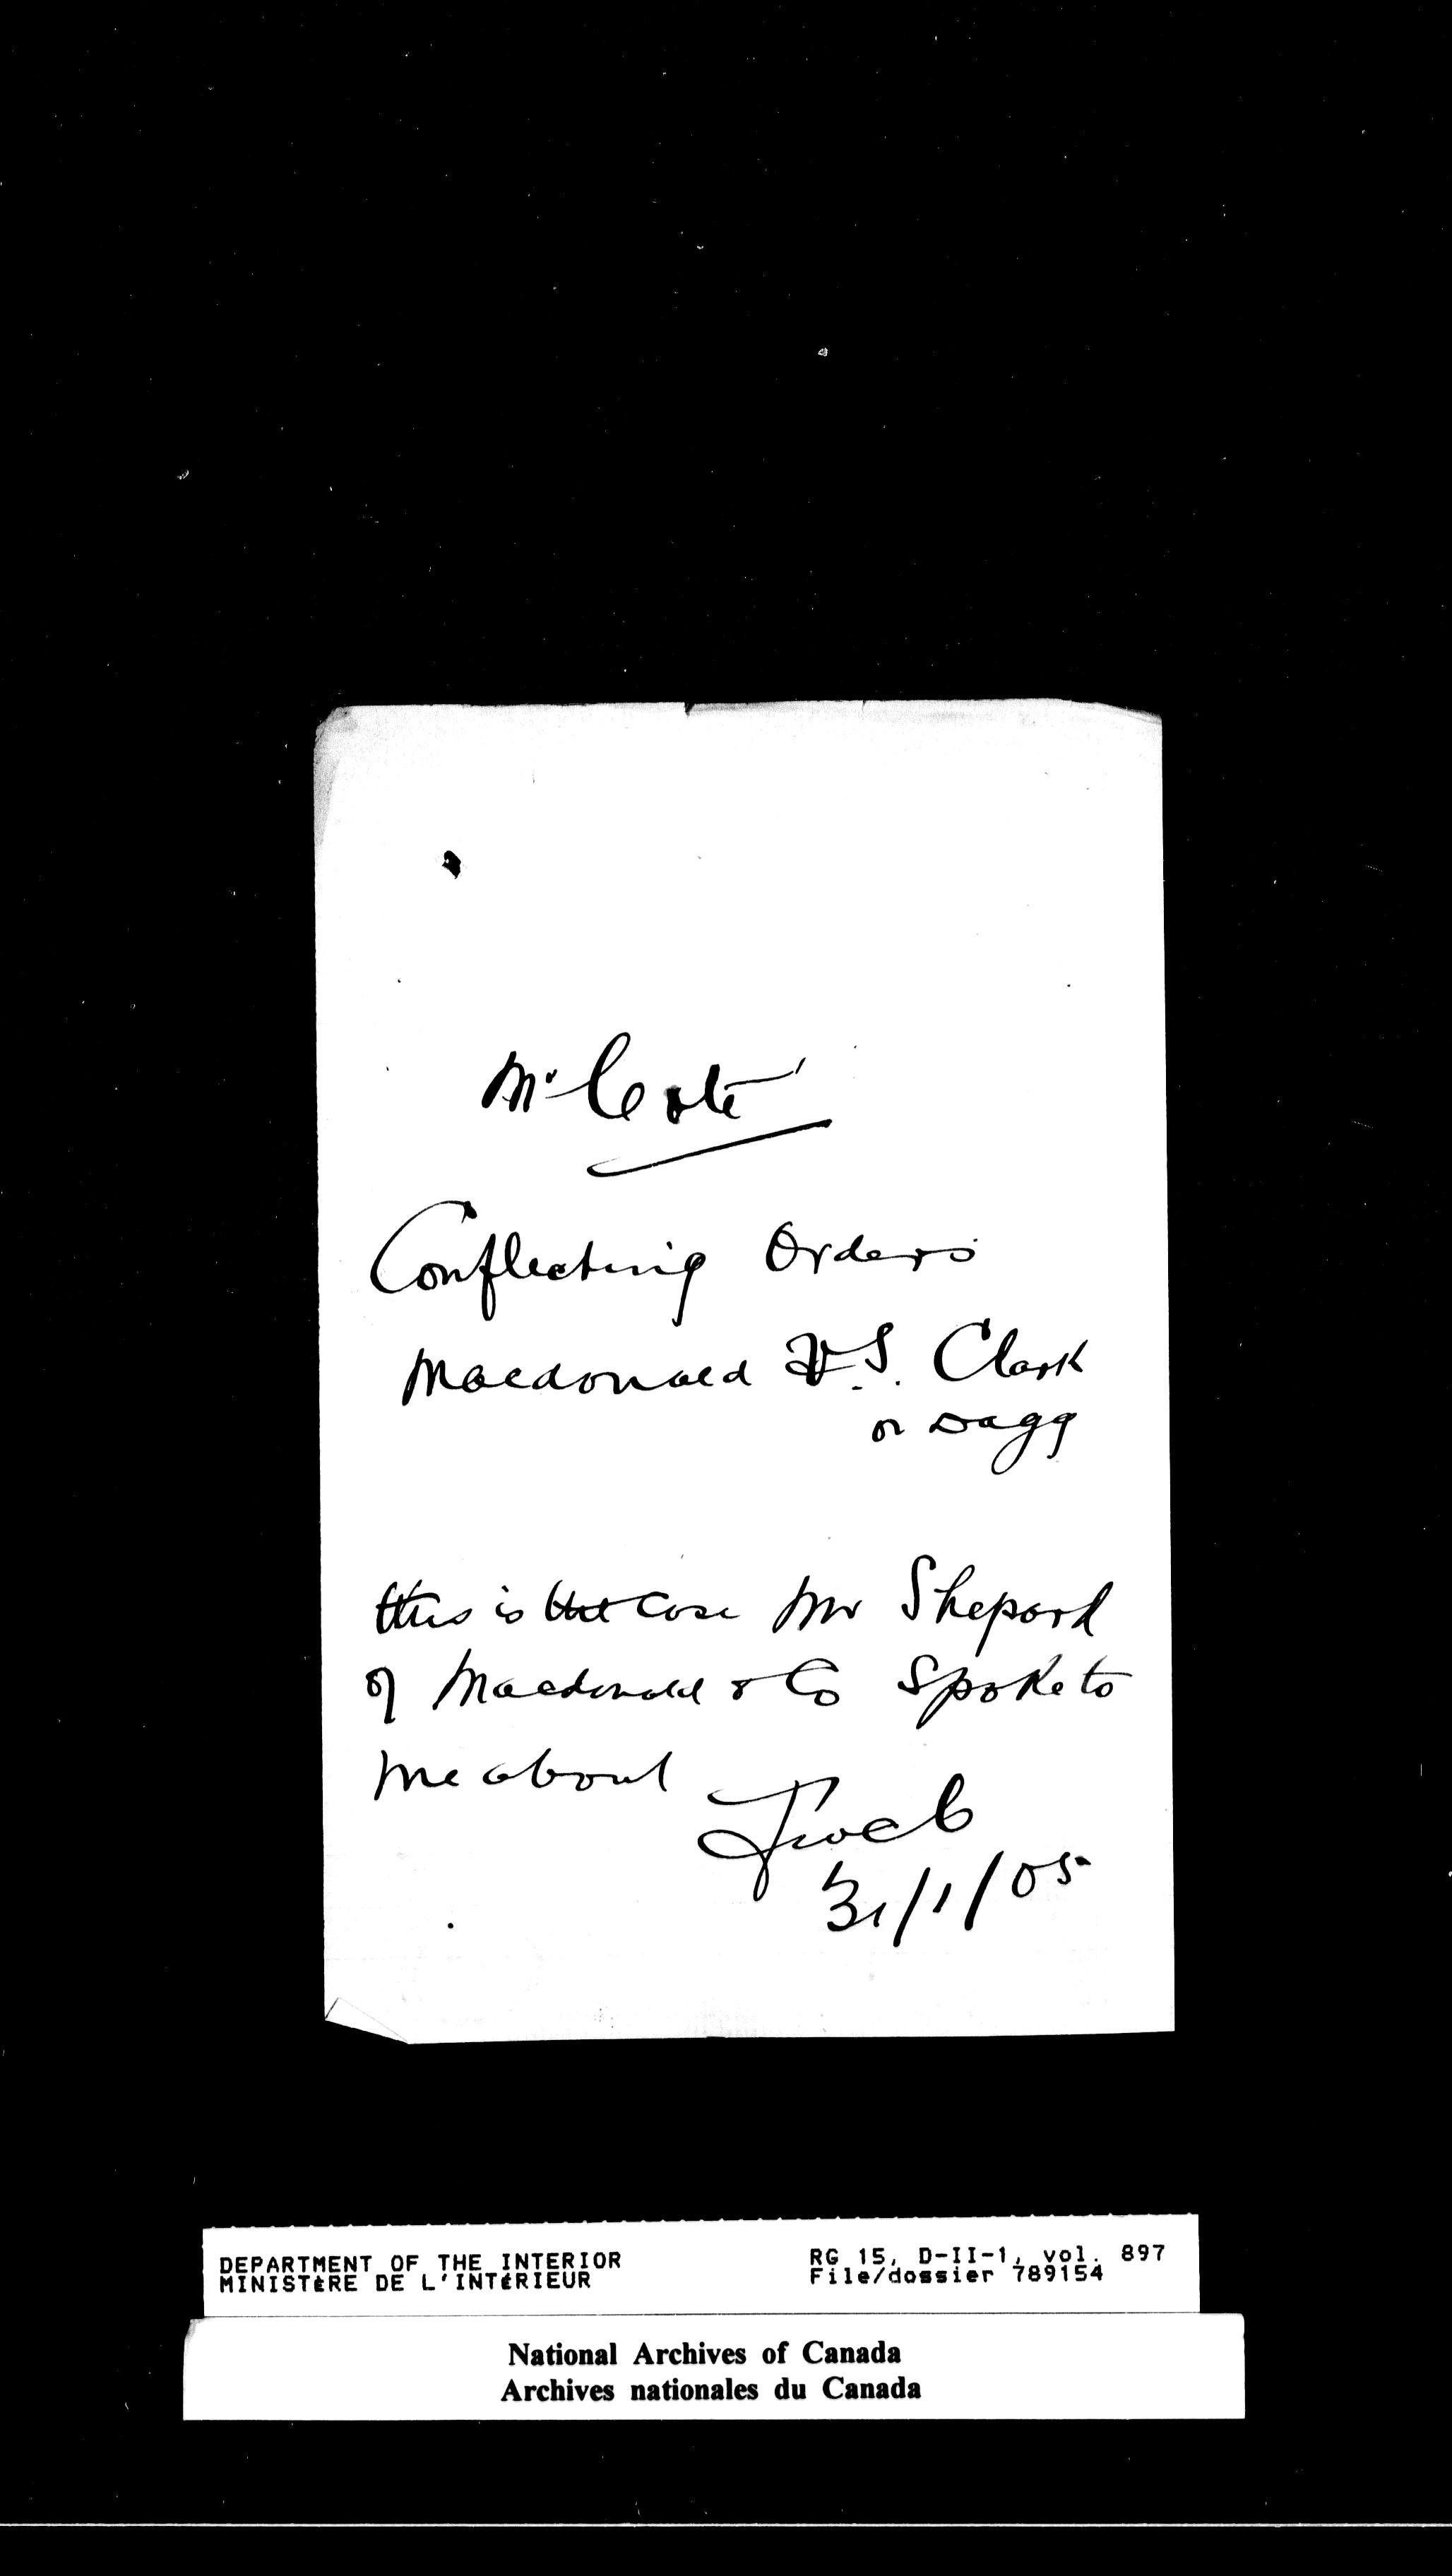 Mr Coté
Conflecting Orders
Macdonald V.S. Clark
or Dagg
this is the case Mr Shepard
of Macdonald & Co Spoke to
me about
31/1/05
DEPARTMENT OF THE INTERIOR
MINISTÈRE DE L'INTÉRIEUR
RG 15, D-II-1, vol. 897
File/dossier 789154
National Archives of Canada
Archives nationales du Canada